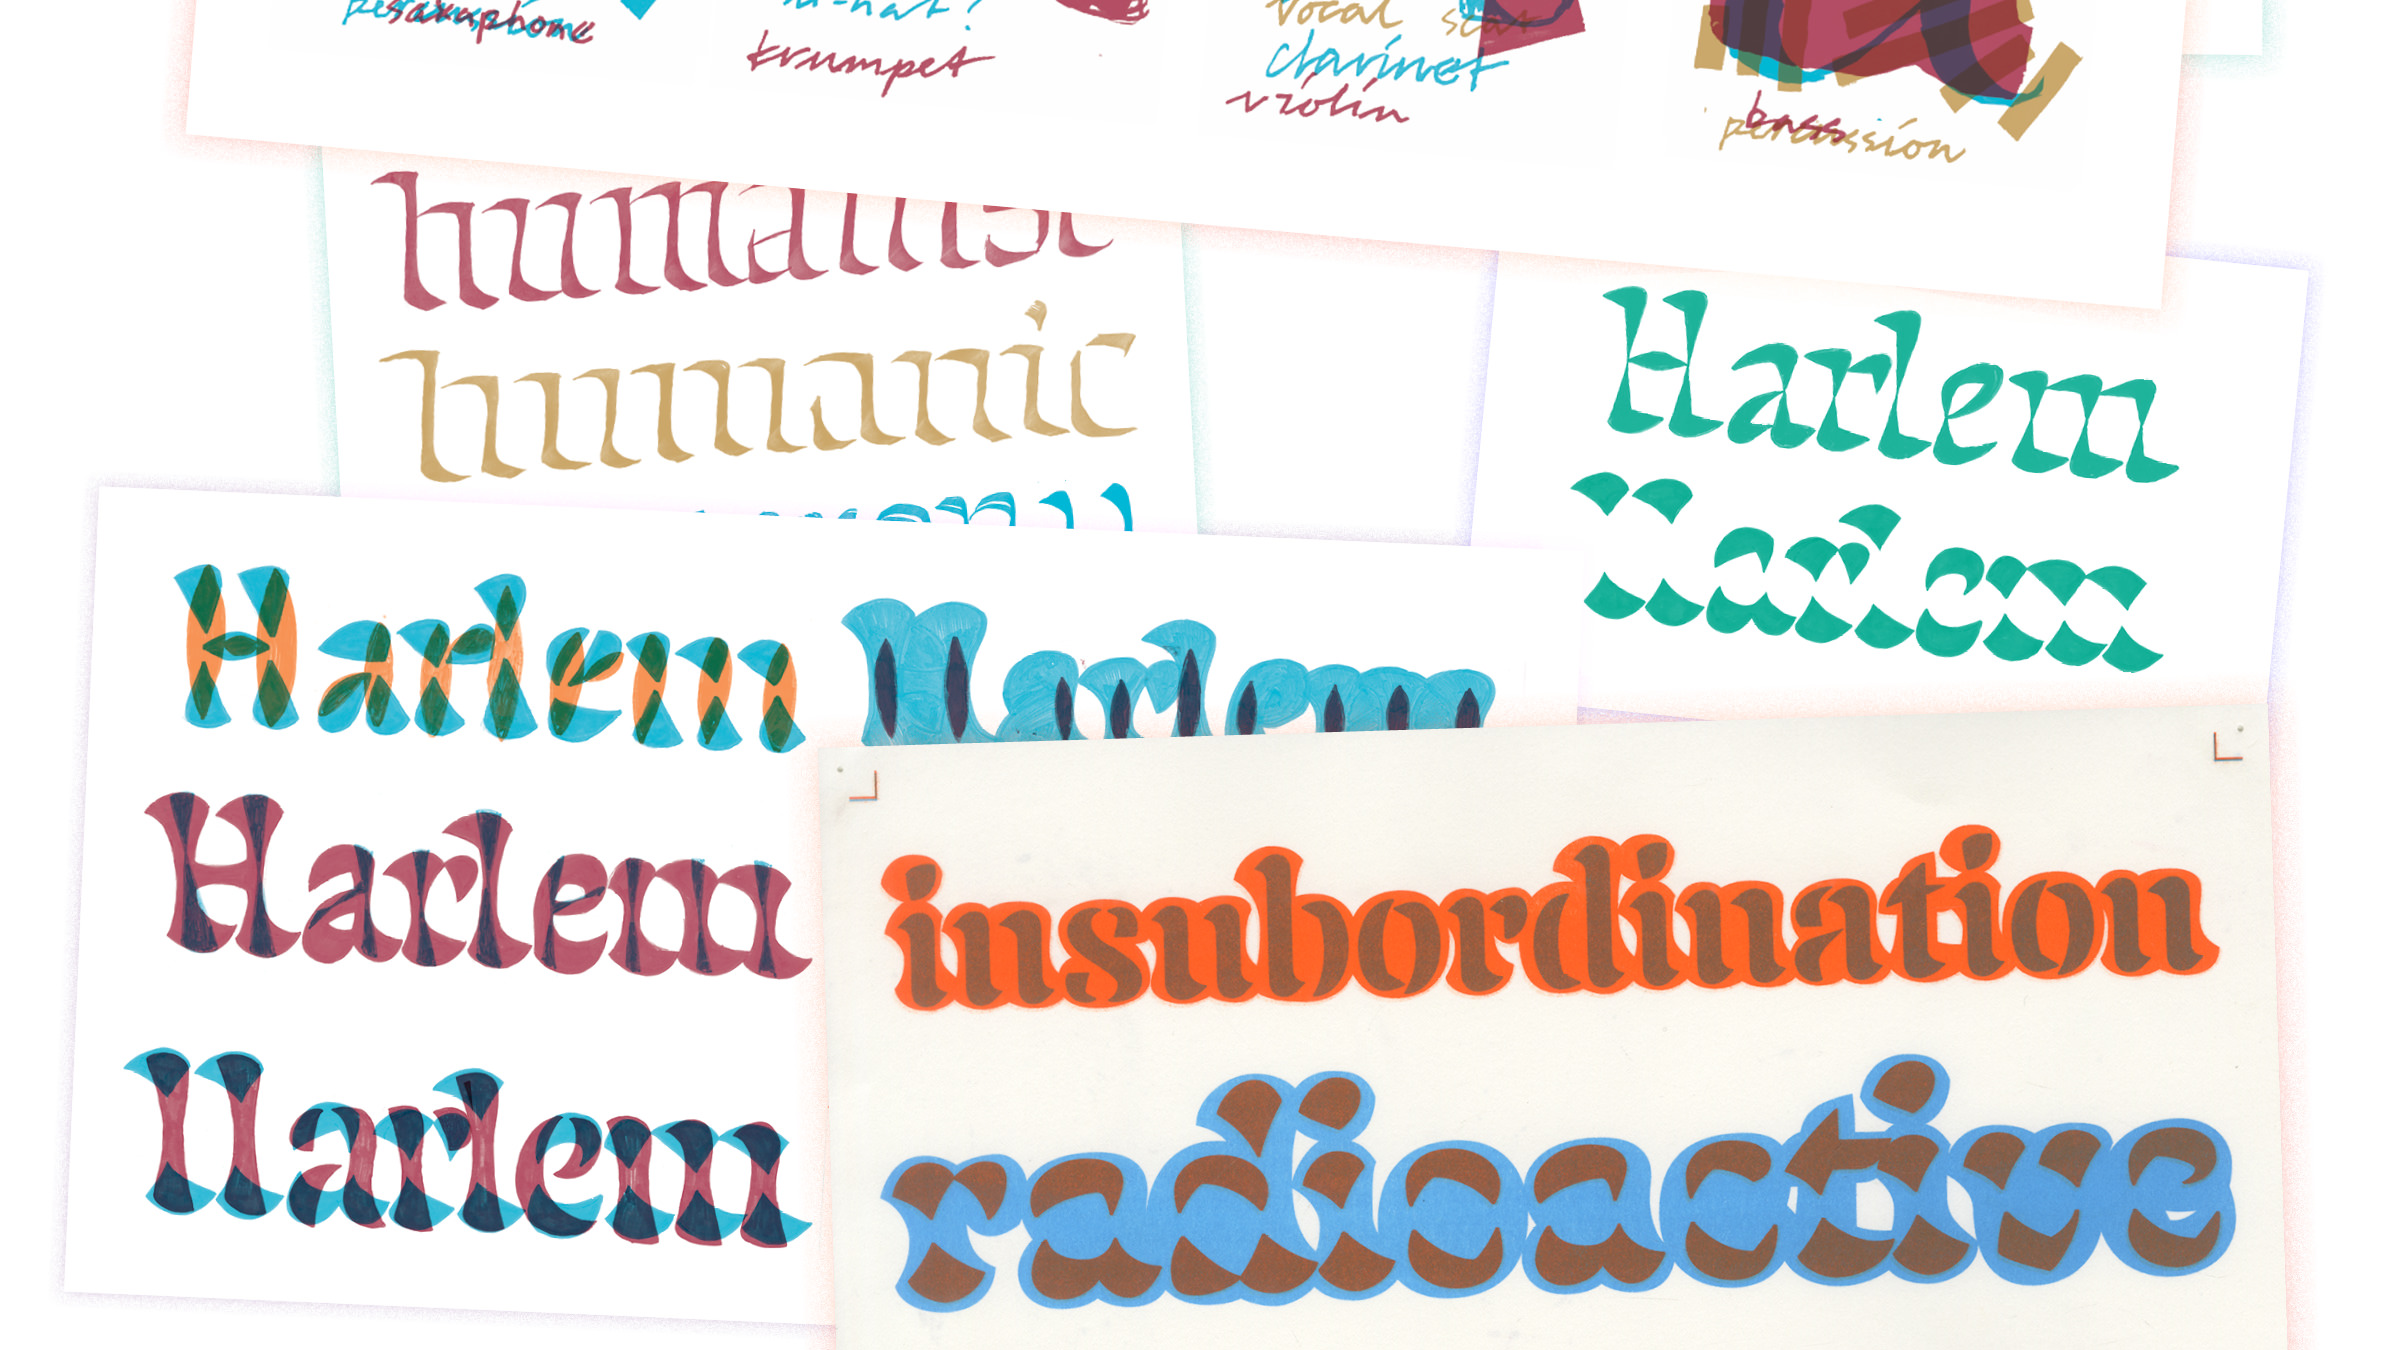 saxuphone
trumpet
vocal scat
clarinet
violin
bass
percussion
humanist
humanic
Harlem
Harlem
Harlem Harlem
Harlem
Harlem
insubordination
radioactive